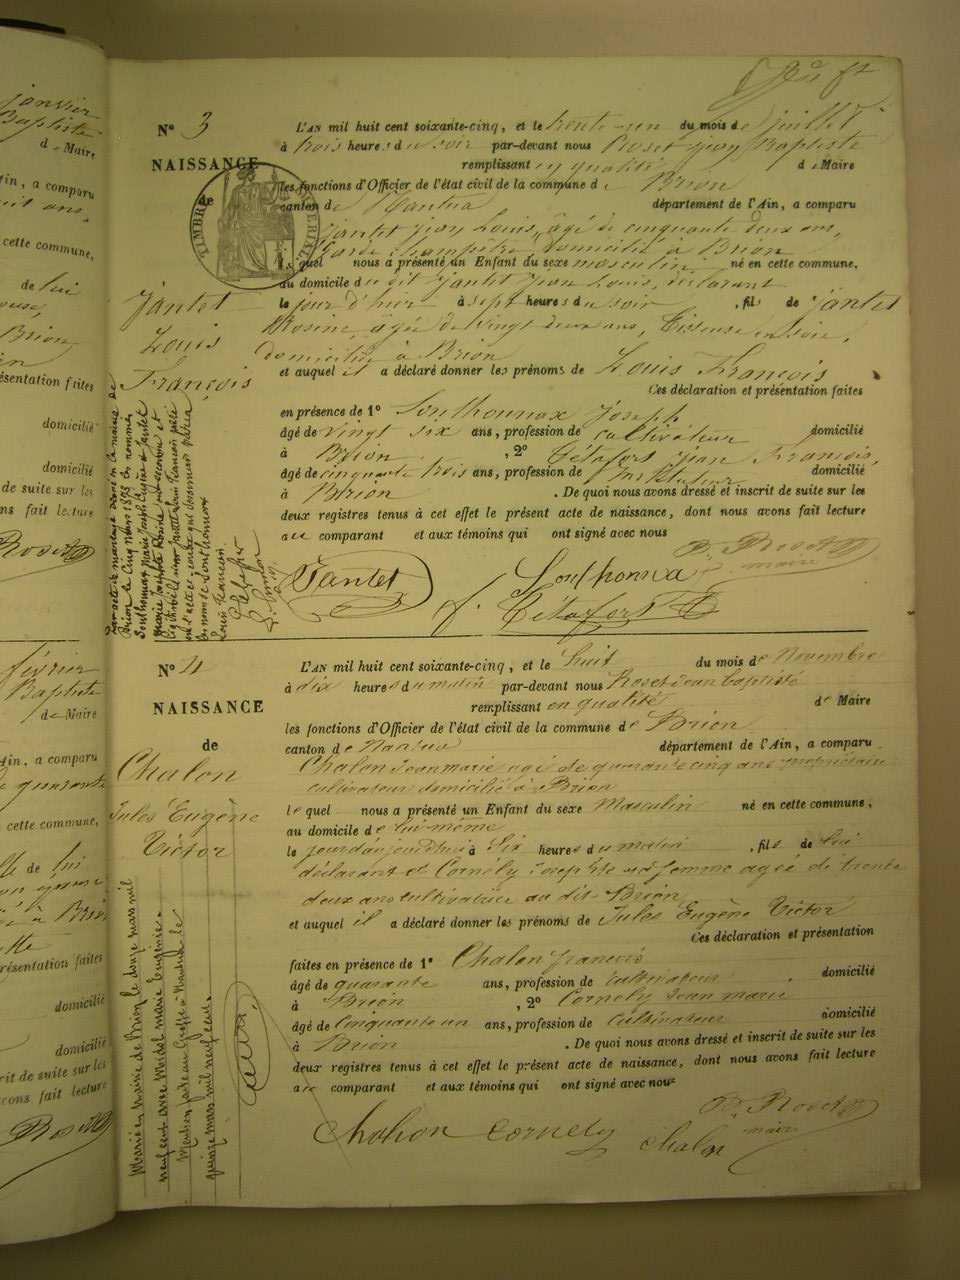 janvier
Baptiste
de Maire
Ain, a comparu
ans,
cette commune,
de lui
Brion
présentation faites
domicilié
domicilié
de suite sur les
ns fait lecture
Roset
février
Baptiste
de Maire
Ain, a comparu
quarante
cette commune,
de lui
Brion
présentation faites
domicilié
domicilié
crit de suite sur les
vons fait lecture
Roset
No 3
NAISSANCE
de
TIMBRE IMPÉRIAL
Jantet
Louis
François
L'AN mil huit cent soixante-cinq, et le trente-un du mois de juillet
à trois heures du soir par-devant nous Roset Jean Baptiste
remplissant en qualité de Maire
les fonctions d'Officier de l'état civil de la commune de Brion
canton de Nantua département de l'Ain, a comparu
Jantet Jean Louis, âgé de cinquante deux ans,
Garde champêtre, domicilié à Brion
lequel nous a présenté un Enfant du sexe masculin né en cette commune,
au domicile du dit Jantet Jean Louis, déclarant
le jour d'hier à sept heures du soir, fils de Jantet
Rosine, âgée de vingt deux ans, Tisseuse en soie,
domiciliée à Brion
et auquel il a déclaré donner les prénoms de Louis François
Ces déclaration et présentation faites
en présence de 1° Sonthonnax Joseph
âgé de vingt six ans, profession de cultivateur domicilié
à Brion, 2° Létafort Jean François,
âgé de cinquante trois ans, profession de Instituteur domicilié
à Brion. De quoi nous avons dressé et inscrit de suite sur les
deux registres tenus à cet effet le présent acte de naissance, dont nous avons fait lecture
au comparant et aux témoins qui ont signé avec nous
B. Roset
maire
Jantet Sonthonnax
f. Létafort
Par acte de mariage dressé en la mairie de
Brion le cinq Mars 1878 les nommés
Sonthonnax Marie Joseph Eugène et Jantet
Marie Josephte Rosine ont reconnu et
légitimé Jantet Louis François
en l'acte ci-contre qui désormais portera
le nom de Sonthonnax
Louis François
No 4
NAISSANCE
de
Chalon
Jules Eugène
Victor
L'AN mil huit cent soixante-cinq, et le huit du mois de Novembre
à dix heures du matin par-devant nous Roset Jean baptiste
remplissant en qualité de Maire
les fonctions d'Officier de l'état civil de la commune de Brion
canton de Nantua département de l'Ain, a comparu
Chalon Jean marie agé de quarante cinq ans propriétaire
cultivateur domicilié à Brion
lequel nous a présenté un Enfant du sexe Masculin né en cette commune,
au domicile de lui même
le jourdaujourdhui à Six heures du matin, fils de lui
déclarant et Cornély Josephte sa femme agée de trente
deux ans cultivatrice au dit Brion
et auquel il a déclaré donner les prénoms de Jules Eugène Victor
Ces déclaration et présentation
faites en présence de 1° Chalon francois
âgé de quarante ans, profession de cultivateur domicilié
à Brion, 2° Cornely Jean marie
âgé de Cinquante un ans, profession de Cultivateur domicilié
à Brion. De quoi nous avons dressé et inscrit de suite sur les
deux registres tenus à cet effet le présent acte de naissance, dont nous avons fait lecture
au comparant et aux témoins qui ont signé avec nous
B. Roset
maire
Chalon Cornely Chalon
Marié en Mairie de Brion le douze mars mil
neuf cent avec Marie Eugénie.
Mention faite au Greffe à Nantua le
quinze mars mil neuf cent.